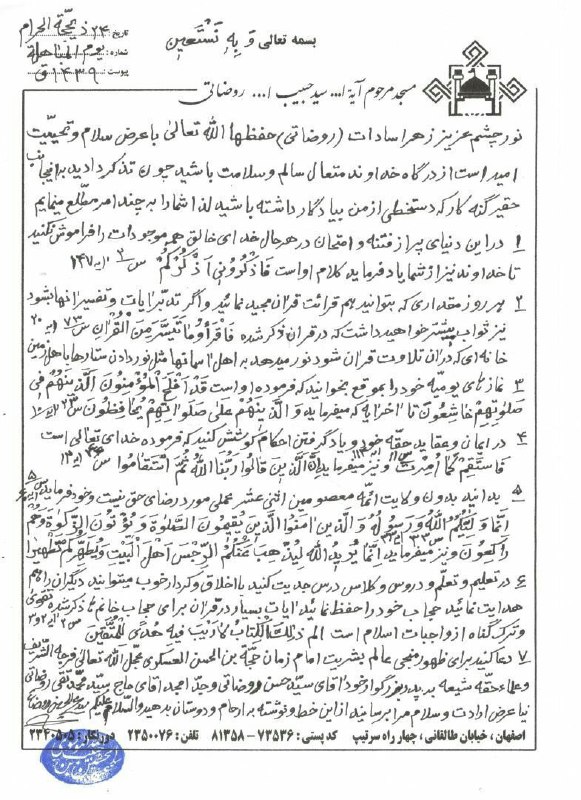 تاریخ: ۲۴ ذیحجّة الحرام
شماره: یوم المباهله
پیوست: ۱۴۳۹ ق
بسمه تعالی و بِهِ نَسْتَعین
مسجد مرحوم آیة ا... سید حبیب ا... روضاتی
نور چشم عزیز زهرا سادات (روضاتی) حفظها الله تعالی با عرض سلام و تحیّت
امید است از درگاه خداوند متعال سالم و سلامت باشید چون تذکر دادید به اینجانب
حقیر گنه کار که دستخطی از من بیادگار داشته باشید لذا شما را به چند امر مطّلع مینمایم
۱ در این دنیای پر از فتنه و امتحان در هر حال خدای خالق همه موجودات را فراموش نکنید
تا خداوند نیز از شما یاد فرماید کلام او است فَاذْکُرُونی اَذْکُرْکُمْ س ۲ ایه ۱۴۷
۲ هر روز مقداری که بتوانید هم قرائت قران مجید نمائید و اگر تدبّر ایات و تفسیر انها بشود
نیز ثواب بیشتر خواهید داشت که در قران ذکر شده فَاقْرَأوُا مَا تَیَسَّرَ مِنَ الْقُرْانِ س ۷۳ ایه ۲۰
خانه ای که در ان تلاوت قران شود نور میدهد به اهل اسمانها مثل نور دادن ستارها باهل زمین
۳ نمازهای یومیّه خود را بموقع بخوانید که فرموده او است قَدْ اَفْلَحَ الْمُؤْمِنُونَ اَلَّذینَهُمْ فی
صَلوتِهِمْ خاشِعُونَ تا اخر ایه که میفرماید وَ الَّذینَهُمْ عَلی صَلَواتِهِمْ یُحافِظُونَ س ۲۳
۴ در ایمان و عقاید حقّه خود و یاد گرفتن احکام کوشش کنید که فرموده خدای تعالی است
فَاسْتَقِمْ کَما اُمِرْتَ و نیز میفرماید اِنَّ الَّذینَ قالُوا رَبُّنَا اللهُ ثُمَّ اسْتَقامُوا س ۴۶ ایه ۱۳
۵ بدانید بدون ولایت ائمّه معصومین اثنی عشر عملی مورد رضای حق نیست و خود فرماید
اِنَّما وَلِیُّکُمُ اللهُ وَ رَسُولُهُ وَ الَّذینَ امَنُوا الَّذینَ یُقیمُونَ الصَّلوةَ وَ یُؤْتُونَ الزَّکوةَ وَ هُمْ
راکِعُونَ و نیز میفرماید اِنَّما یُریدُ اللهُ لِیُذْهِبَ عَنْکُمُ الرِّجْسَ اَهْلَ الْبَیْتِ وَ یُطَهِّرَکُمْ تَطْهیراً س ۳۳
۶ در تعلیم و تعلّم و دروس و کلاس درس جدیت کنید با اخلاق و کردار خوب میتوانید دیگران را هم
هدایت نمائید حجاب خود را حفظ نمائید ایات بسیار در قران برای حجاب خانم ها ذکر شده تقوی
و ترک گناه از واجبات اسلام است الم ذلِکَ الْکِتابُ لارَیْبَ فیه هُدیً لِلْمُتَّقینَ س ۲ ایه ۲ و ۳
۷ دعا کنید برای ظهور منجی عالم بشریت امام زمان حجّة بن الحسن العسکری عجّل الله تعالی فرجه الشّریف
و علماء حقّه شیعه به پدر بزرگوار خود اقای سیّد حسن روضاتی و جدّ امجد اقای حاج سیّد محمّد تقی روضاتی
نیز عرض ارادت و سلام مرا برسانید از این خط و نوشته به ارحام و دوستان بدهید والسّلام علیکم
اصفهان، خیابان طالقانی، چهار راه سرتیپ کد پستی: ۷۳۵۳۶ – ۸۱۳۵۸ تلفن: ۲۳۵۰۰۷۶ دورنگار: ۲۳۴۰۵۰۵